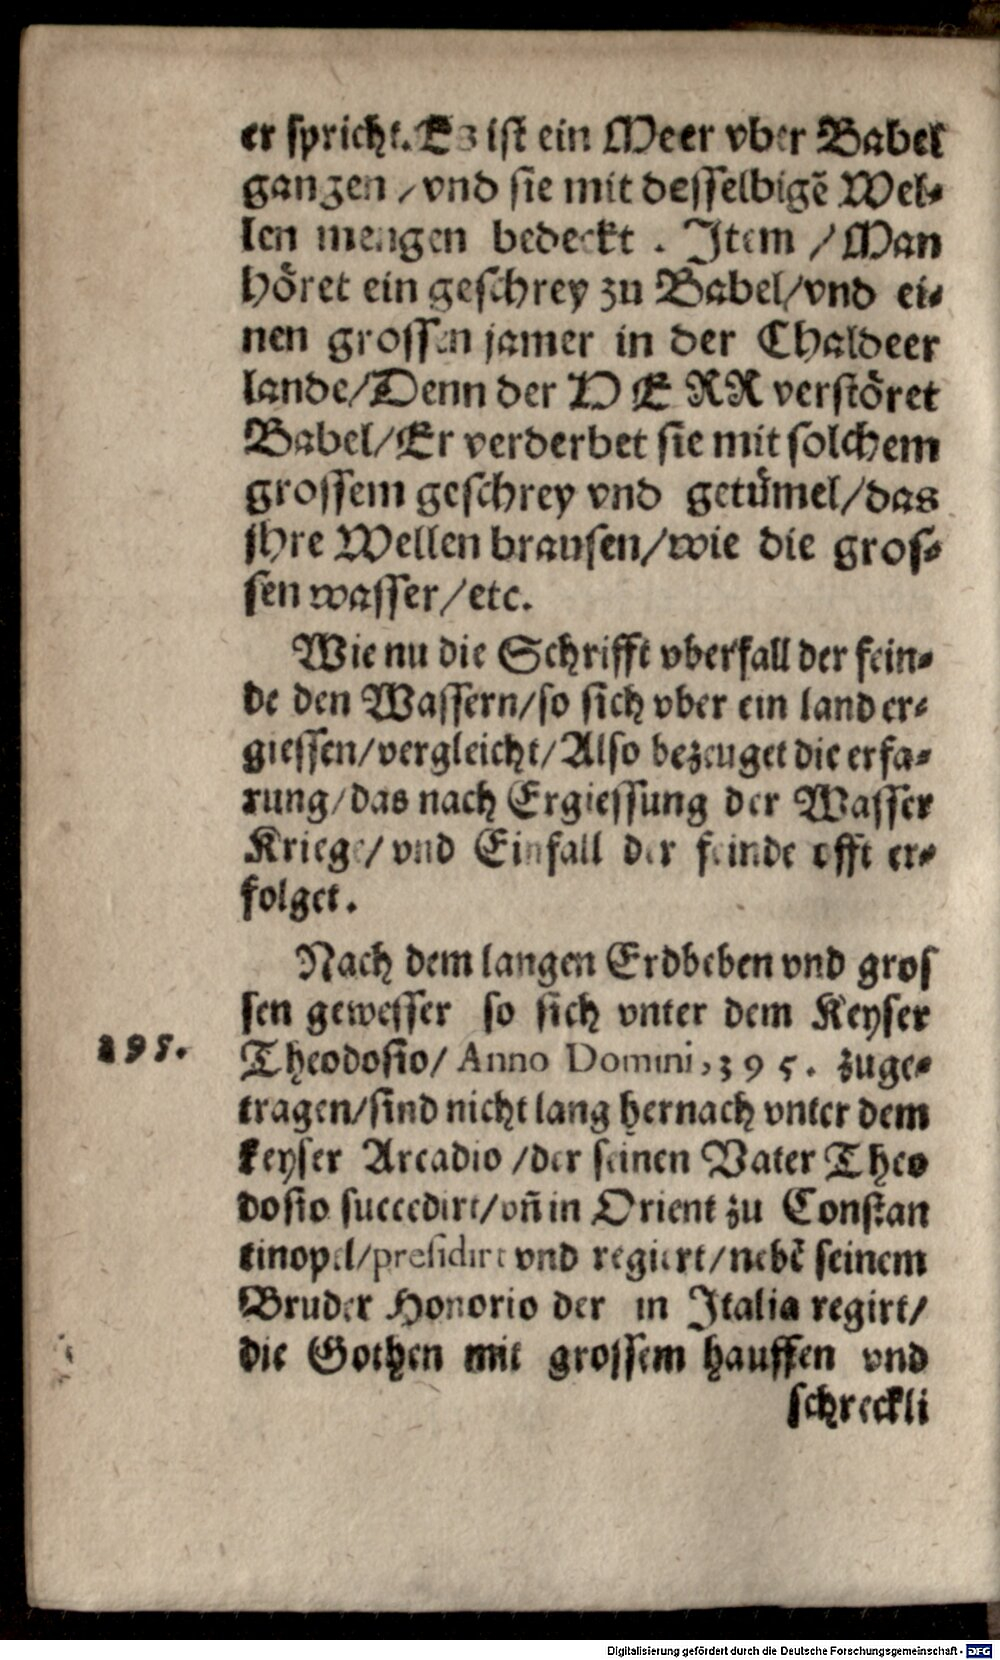 er spricht. Es ist ein Meer vber Babel
gangen / vnd sie mit desselbigē Wel⸗
len mengen bedeckt . Item / Man
höret ein geschrey zu Babel/vnd ei⸗
nen grossen jamer in der Chaldeer
lande/Denn der HERR verstöret
Babel/Er verderbet sie mit solchem
grossem geschrey vnd getümel/das
jhre Wellen brausen/wie die gros⸗
sen wasser/etc.
Wie nu die Schrifft vberfall der fein⸗
de den Wassern/so sich vber ein land er⸗
giessen/vergleicht/Also bezeuget die erfa⸗
rung/das nach Ergiessung der Wasser
Kriege/vnd Einfall der feinde offt er⸗
folget.
Nach dem langen Erdbeben vnd gros
sen gewesser so sich vnter dem Keyser
395.
Theodosio/ Anno Domini, 395. zuge⸗
tragen/sind nicht lang hernach vnter dem
keyser Arcadio /der seinen Vater Theo
dosio succedirt/vn̄ in Orient zu Constan
tinopel/presidirt vnd regiert/nebē seinem
Bruder Honorio der in Italia regirt/
die Gothen mit grossem hauffen vnd
schreckli
Digitalisierung gefördert durch die Deutsche Forschungsgemeinschaft - DFG